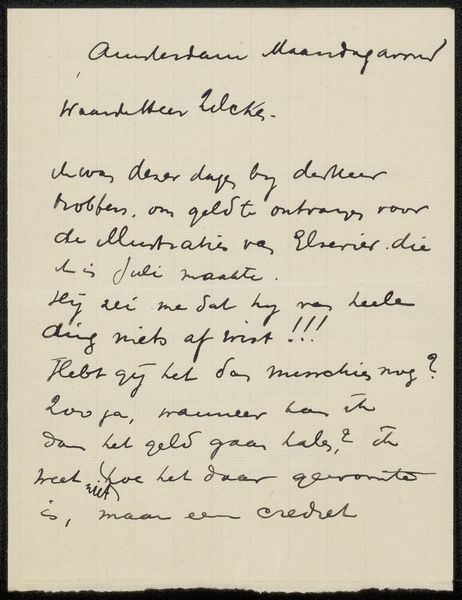 Amsterdam Maandagavond
Waarde Heer Zilcken.
Ik was dezer dagen by den Heer
Robbers, om geld te ontvangen voor
de illustraties van Elsevier die
ik in Juli maakte.
Hij zei me dat hy van heele
ding niets af wist!!!
Hebt gij het dan misschien nog?
Zoo ja, wanneer kan ik
dan het geld gaan halen? Ik
weet niet hoe het daar gewoonte
is, maar een crediet